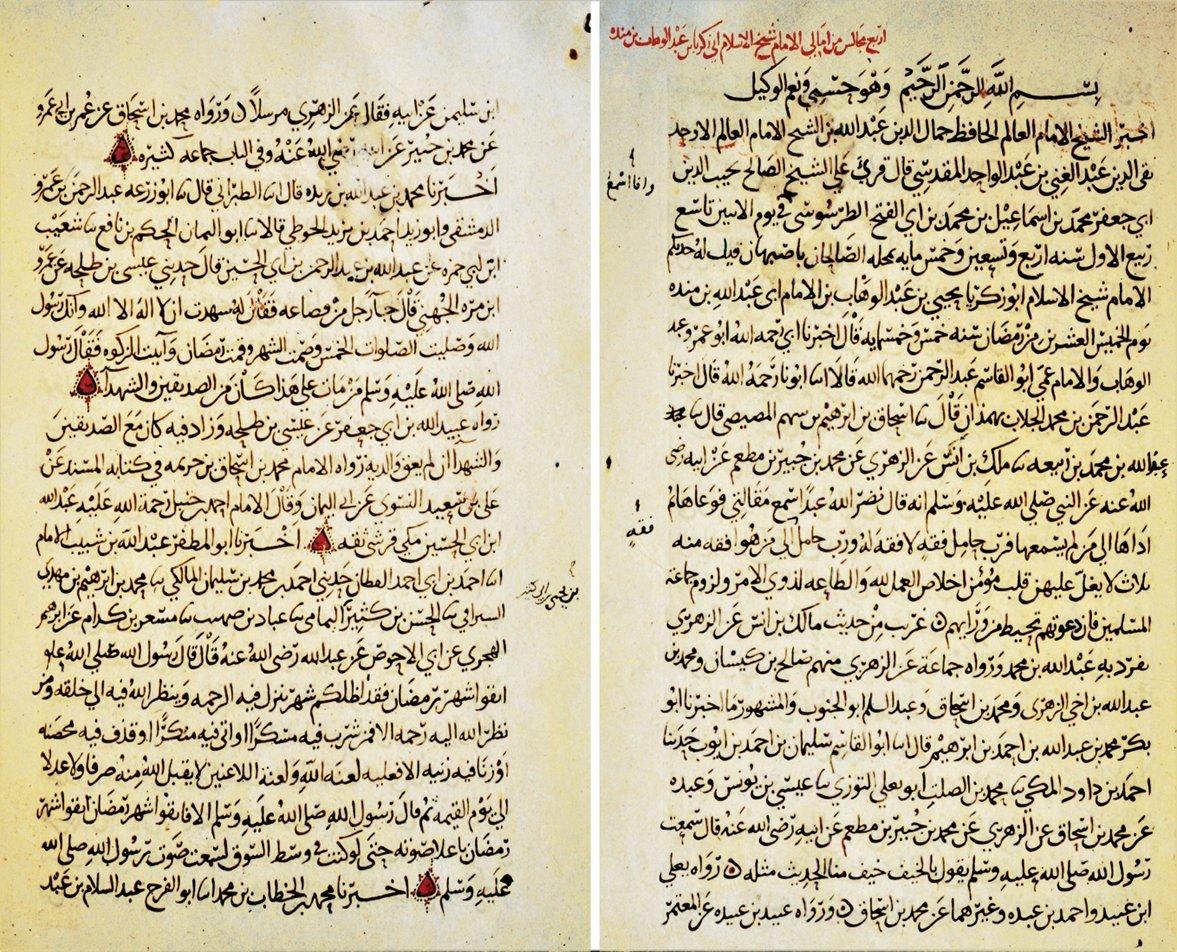 اربع مجالس من امالي الامام شيخ الاسلام ابي زكريا بن عبد الوهاب بن منده
بسم الله الرحمن الرحيم وهو حسبي ونعم الوكيل
اخبرنا الشيخ الامام العالم الحافظ جمال الدين عبد الله بن الشيخ الامام العالم الاوحد
تقي الدين عبد الغني بن عبد الواحد المقدسي قال قرئ علي الشيخ الصالح نجيب الدين
وانا اسمع
ابي جعفر محمد بن اسماعيل بن محمد بن ابي الفتح الطرسوسي في يوم الاثنين تاسع
ربيع الاول سنه اربع وتسعين وخمس مايه بمحله الصالحان باصبهان قيل له حدثكم
الامام شيخ الاسلام ابو زكريا يحيى بن عبد الوهاب بن الامام ابي عبد الله بن منده
يوم الخميس العشرين من رمضان سنه خمس وخمسمايه قال اخبرنا ابي رحمه الله ابو عمرو عبد
الوهاب والامام عمي ابو القاسم عبد الرحمن رحمهما الله قالا انا ابونا رحمه الله قال اخبرنا
عبد الرحمن بن محمد الجلاب بهمذان قال نا اسحاق بن ابرهيم بن سهم المصيصي قال نا
عبد الله بن محمد بن ربيعه نا ملك بن انس عن الزهري عن محمد بن جبير بن مطعم عن ابيه رضي
الله عنه عن النبي صلى الله عليه وسلم انه قال نضر الله عبدا سمع مقالتي فوعاها ثم
اداها الى من لم يسمعها فرب حامل فقه لا فقه له ورب حامل الى من هو افقه منه
فقه
ثلاث لا يغل عليهن قلب مؤمن اخلاص العمل لله والطاعه لذوي الامر ولزوم جماعة
المسلمين فان دعوتهم تحيط من ورايهم غريب من حديث مالك بن انس عن الزهري
تفرد به عبد الله بن محمد ورواه جماعة عن الزهري منهم صالح بن كيسان ومحمد بن
عبد الله بن اخي الزهري ومحمد بن اسحاق وعبد السلم ابو الجنوب والمشهور ما اخبرنا ابو
بكر محمد بن عبد الله بن احمد بن ابرهيم قال انا ابو القاسم سليمان بن احمد بن ايوب حدثنا
احمد بن داود المكي نا محمد بن الصلت ابو يعلى التوزي نا عيسى بن يونس وعبده
عن محمد بن اسحاق عن الزهري عن محمد بن جبير بن مطعم عن ابيه رضي الله عنه قال سمعت
رسول الله صلى الله عليه وسلم يقول بالخيف خيف منا الحديث مثله رواه يعلي
ابن عبيد واحمد بن عبده وغيرهما عن محمد بن اسحاق ورواه عبيد بن عبيده عن المعتمر
ابن سليمن عن ابيه فقال عن الزهري مرسلا ورواه محمد بن اسحاق عن عمر بن ابي عمرو
عن محمد بن جبير عن ابيه رضي الله عنه وفي الباب جماعه كثيره
اخبرنا محمد بن عبد الله بن ريده قال انا الطبراني قال نا ابو زرعه عبد الرحمن بن عمرو
الدمشقي وابو زيد احمد بن يزيد الحوطي قالا نا ابو اليمان الحكم بن نافع نا شعيب
ابن ابي حمزه عن عبد الله بن عبد الرحمن بن ابي الحسين قال حدثني عيسى بن طلحه عن عمرو
ابن مره الجهني قال جا رجل من قضاعه فقال له شهدت ان لا اله الا الله وانك رسول
الله وصليت الصلوات الخمس وصمت الشهر وقمت رمضان وآتيت الزكوه فقال رسول
الله صلى الله عليه وسلم من مات على هذا كان من الصديقين والشهدا
رواه عبيد الله بن ابي جعفر عن عيسى بن طلحه وزاد فيه كان مع الصديقين
والشهدا ان لم يعق والديه رواه الامام محمد بن اسحاق بن خزيمه في كتابه المسند عن
علي بن سعيد النسوي عن ابي اليمان وقال الامام احمد بن حنبل رحمة الله عليه عبد الله
ابن ابي الحسين مكي قرشي ثقه اخبرنا ابو المظفر عبد الله بن شبيب الامام
انا احمد بن ابي احمد القطان حدثني احمد بن محمد بن سليمان المالكي نا محمد بن ابرهيم بن مهدي
السيرافي نا الحسن بن كثير اليمامي نا عباد بن صهيب نا مسعر بن كدام عن ابرهيم
الهجري عن ابي الاحوص عن عبد الله رضي الله عنه قال قال رسول الله صلى الله عليه
اتقوا شهر رمضان فقد اظلكم شهر تنزل فيه الرحمه وينظر الله فيه الى خلقه ومن
نظر الله اليه رحمه الا فمن شرب فيه مسكرا او اتى فيه منكرا او قذف فيه محصنه
او زنا فيه زنيه الا فعليه لعنه الله ولعنة اللاعنين لا يقبل الله منه صرفا ولا عدلا
الي يوم القيمه ثم قال رسول الله صلى الله عليه وسلم الا فاتقوا شهر رمضان اتقوا شهر
رمضان باعلا صوته حتى لو كنت في وسط السوق لسمعت صوت رسول الله صلى الله
عليه وسلم اخبرنا محمد بن الخطاب بن محمد انا ابو الفرج عبد السلام بن عبد